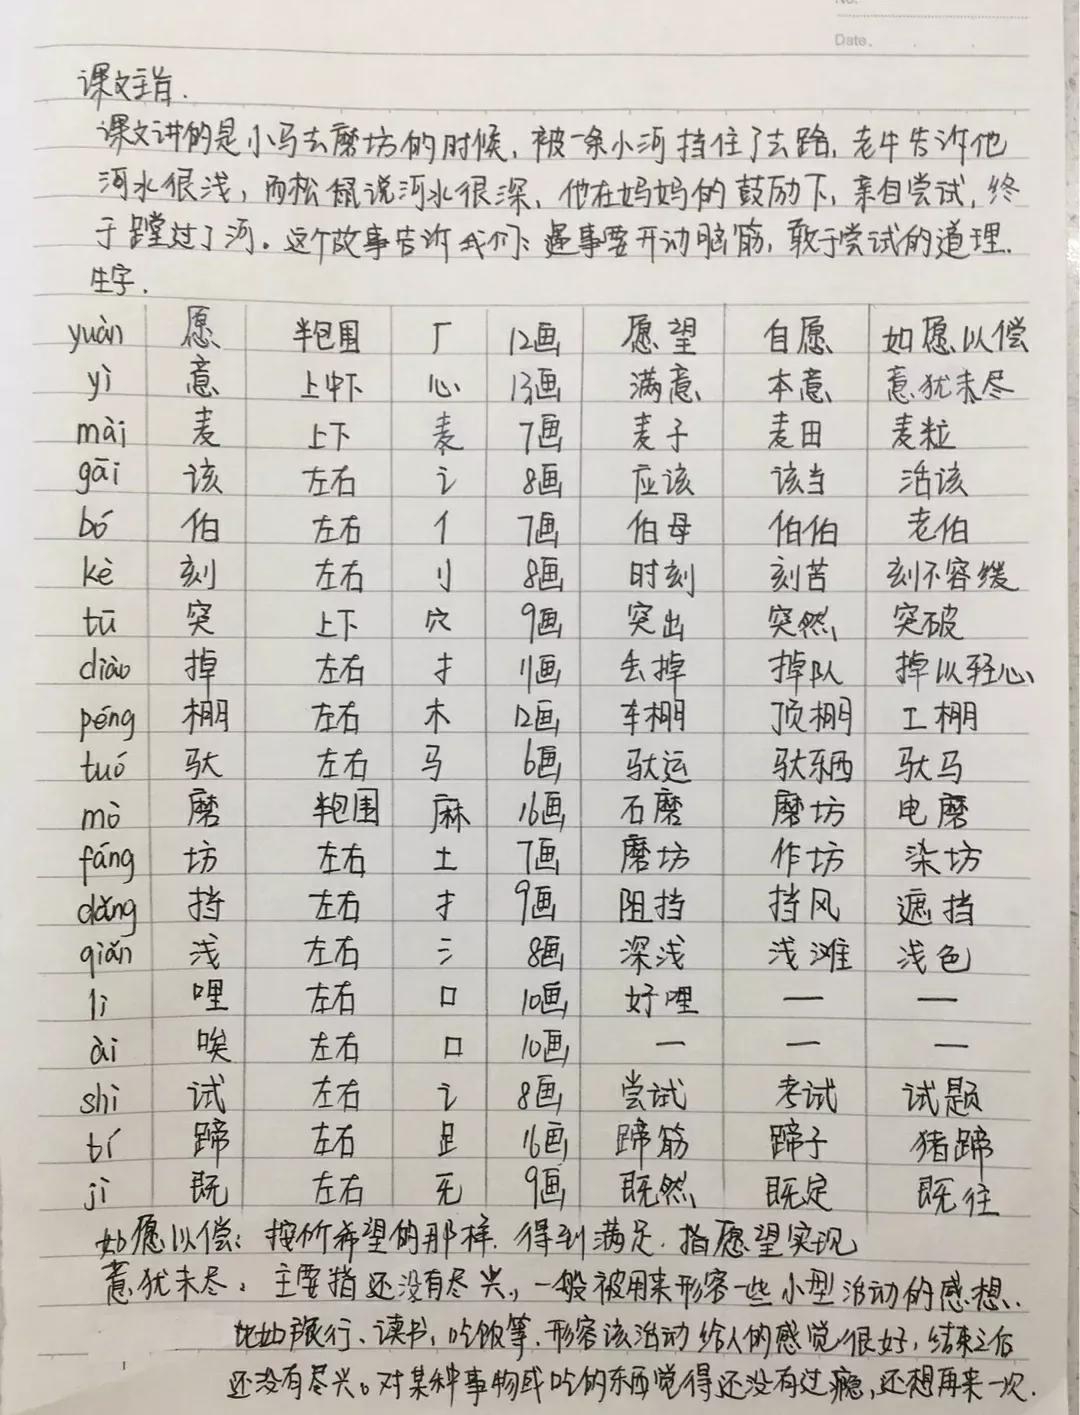 No.
Date.
课文主旨.
课文讲的是小马去磨坊的时候,被一条小河挡住了去路,老牛告诉他
河水很浅,而松鼠说河水很深,他在妈妈的鼓励下,亲自尝试,终
于蹚过了河。这个故事告诉我们:遇事要开动脑筋,敢于尝试的道理.
生字.
yuàn 愿 半包围 厂 12画 愿望 自愿 如愿以偿
yì 意 上中下 心 13画 满意 本意 意犹未尽
mài 麦 上下 麦 7画 麦子 麦田 麦粒
gāi 该 左右 讠 8画 应该 该当 活该
bó 伯 左右 亻 7画 伯母 伯伯 老伯
kè 刻 左右 刂 8画 时刻 刻苦 刻不容缓
tū 突 上下 穴 9画 突出 突然 突破
diào 掉 左右 扌 11画 丢掉 掉队 掉以轻心
péng 棚 左右 木 12画 车棚 顶棚 工棚
tuó 驮 左右 马 6画 驮运 驮东西 驮马
mò 磨 半包围 麻 16画 石磨 磨坊 电磨
fáng 坊 左右 土 7画 磨坊 作坊 染坊
dǎng 挡 左右 扌 9画 阻挡 挡风 遮挡
qiǎn 浅 左右 氵 8画 深浅 浅滩 浅色
li 哩 左右 口 10画 好哩 — —
ài 唉 左右 口 10画 — — —
shì 试 左右 讠 8画 尝试 考试 试题
tí 蹄 左右 足 16画 蹄筋 蹄子 猪蹄
jì 既 左右 旡 9画 既然 既定 既往
如愿以偿:按所希望的那样.得到满足.指愿望实现
意犹未尽:主要指还没有尽兴,一般被用来形容一些小型活动的感想.
比如旅行、读书,吃饭等.形容该活动给人的感觉很好,结束之后
还没有尽兴。对某种事物或吃的东西觉得还没有过瘾,还想再来一次.